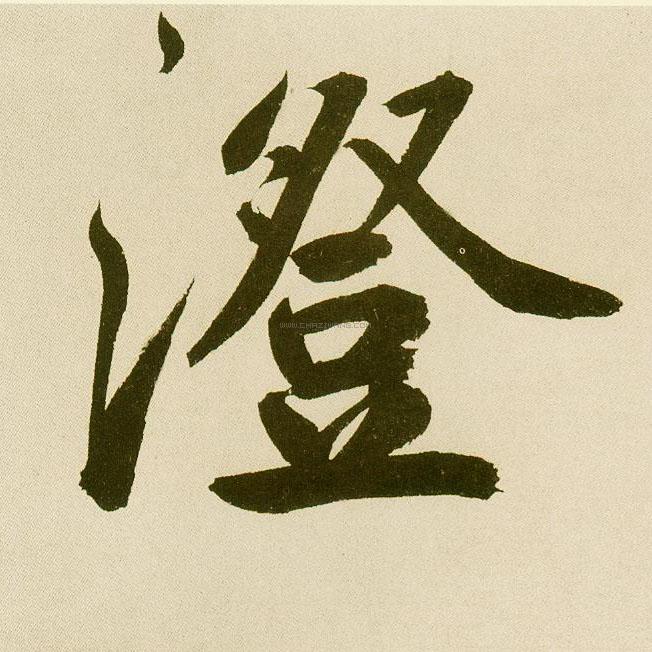 澄
WWW.CHAZIWANG.COM